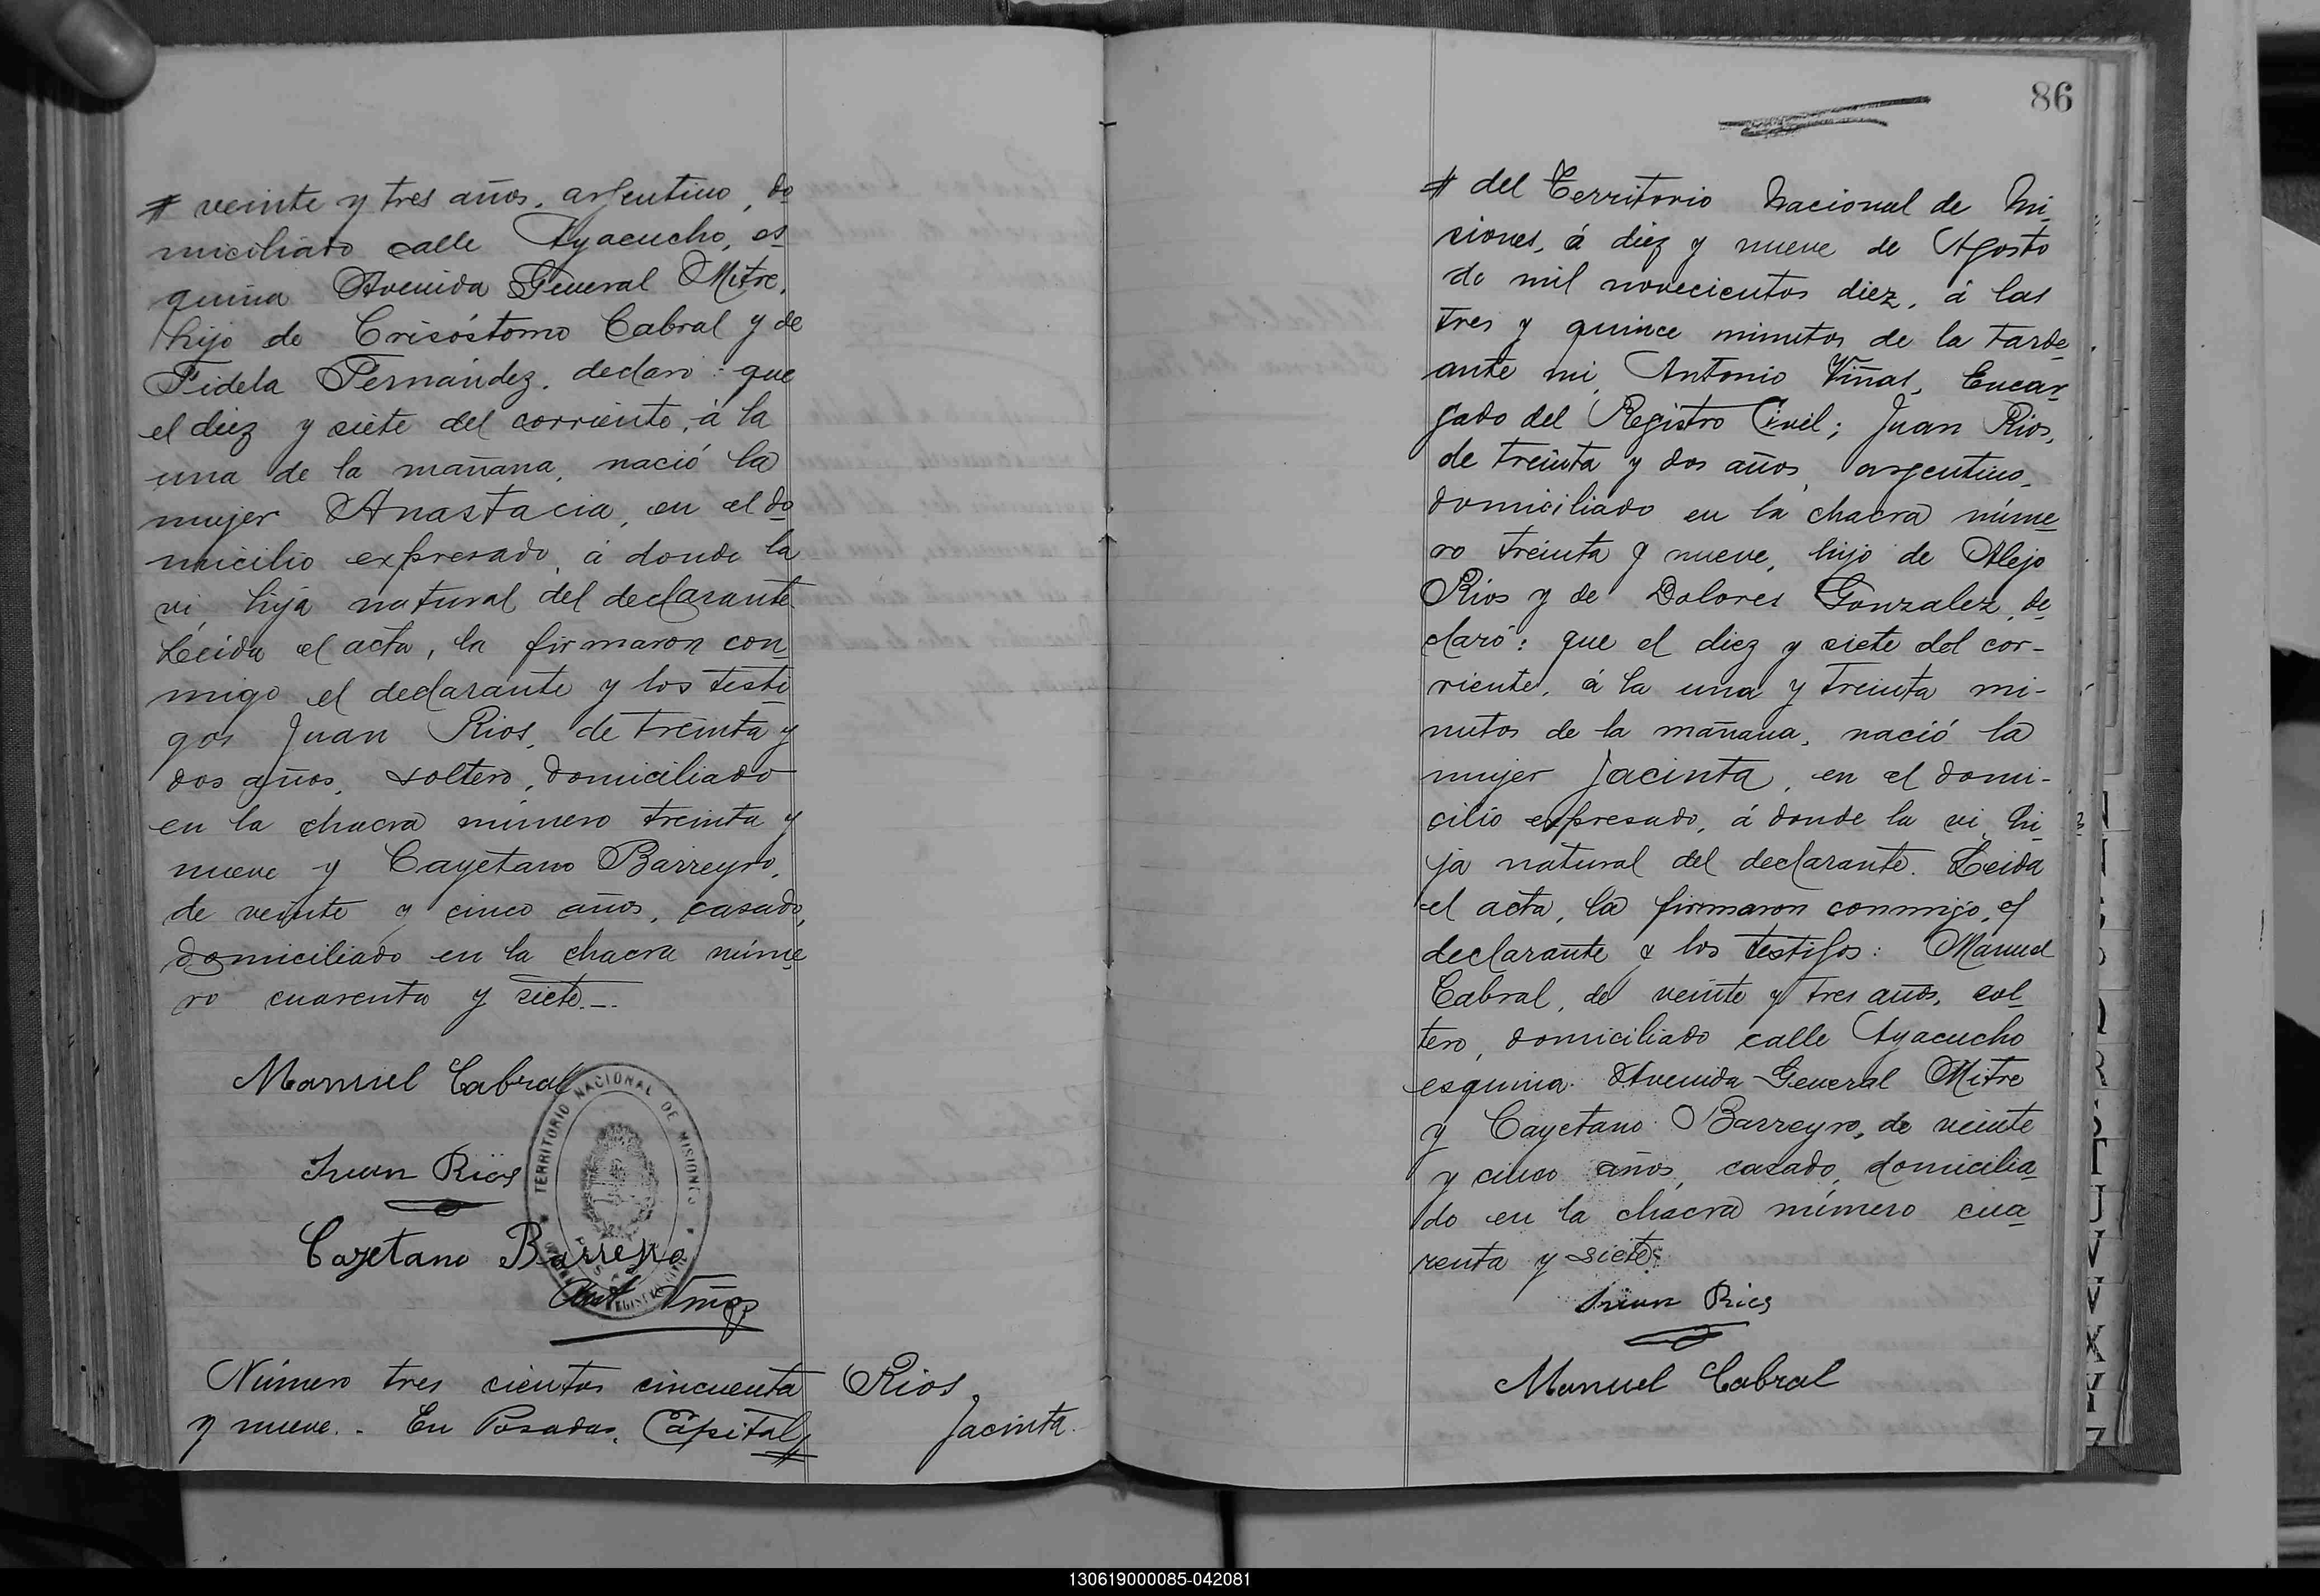 # veinte y tres años, argentino, do
miciliado calle Ayacucho, es
quina Avenida General Mitre,
hijo de Crisóstomo Cabral y de
Fidela Fernández, declaró: que
el diez y siete del corriente, á la
una de la mañana, nació la
mujer Anastacia, en el do
micilio expresado, á donde la
vi, hija natural del declarante.
Leida el acta, la firmaron con
migo el declarante y los testi
gos Juan Rios, de treinta y
dos años, soltero, domiciliado
en la chacra número treinta y
nueve y Cayetano Barreyro,
de veinte y cinco años, casado,
domiciliado en la chacra núme
ro cuarenta y siete.—.
Manuel Cabral
TERRITORIO NACIONAL DE MISIONES
Juan Rios
Cayetano Barreyro
Ant Viñas
Número tres cientos cincuenta
y nueve.. En Posadas, Capital #
Rios,
Jacinta.
86
# del Territorio Nacional de Mi
siones, á diez y nueve de Agosto
de mil novecientos diez, á las
tres y quince minutos de la tarde
ante mi, Antonio Viñas, Encar
gado del Registro Civil; Juan Rios,
de treinta y dos años, argentino,
domiciliado en la chacra núme
ro treinta y nueve, hijo de Alejo
Rios y de Dolores Gonzalez, de
claró: que el diez y siete del cor-
riente, á la una y treinta mi-
nutos de la mañana, nació la
mujer Jacinta, en el domi-
cilio expresado, á donde la vi, hi
ja natural del declarante. Leida
el acta, la firmaron conmigo, el
declarante y los testigos: Manuel
Cabral, de veinte y tres años, sol
tero, domiciliado calle Ayacucho
esquina Avenida General Mitre
y Cayetano Barreyro, de veinte
y cinco años, casado, domicilia
do en la chacra número cua
renta y siete.
Juan Rios
Manuel Cabral
130619000085-042081